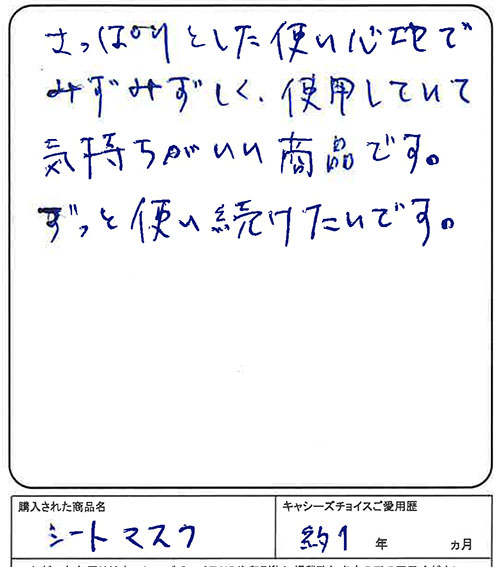 さっぱりとした使い心地で
みずみずしく、使用していて
気持ちがいい商品です。
ずっと使い続けたいです。
購入された商品名
キャシーズチョイスご愛用歴
シートマスク
約1 年 ヵ月